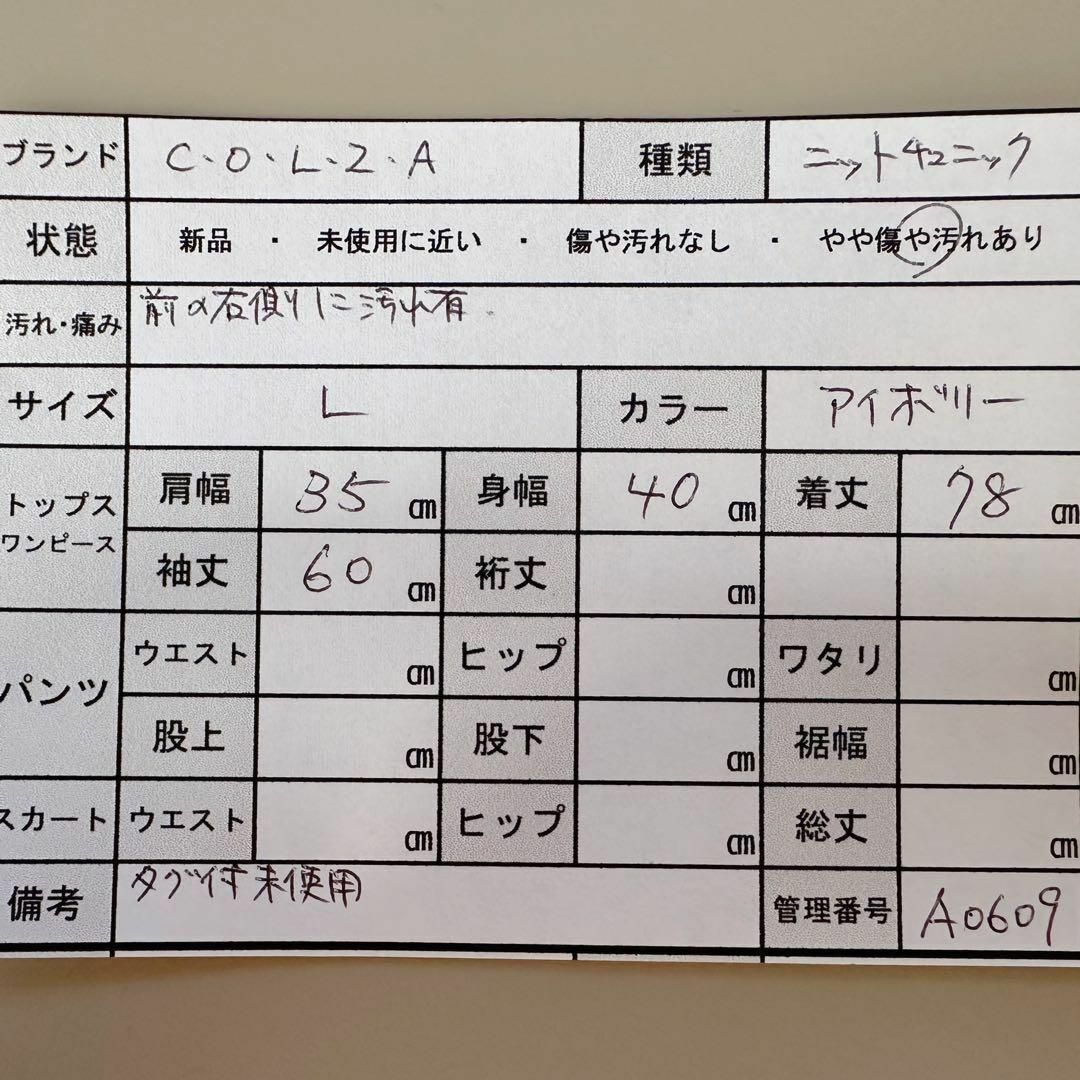 ブランド C・O・L・Z・A 種類 ニットチュニック
状態 新品 ・ 未使用に近い ・ 傷や汚れなし ・ やや傷や汚れあり
汚れ・痛み 前の右側りに汚れ有
サイズ L カラー アイボリー
トップス
ワンピース
肩幅 35 ㎝ 身幅 40 ㎝ 着丈 78 ㎝
袖丈 60 ㎝ 裄丈 ㎝
パンツ
ウエスト ㎝ ヒップ ㎝ ワタリ ㎝
股上 ㎝ 股下 ㎝ 裾幅 ㎝
スカート ウエスト ㎝ ヒップ ㎝ 総丈 ㎝
備考 タグ付未使用 管理番号 A0609